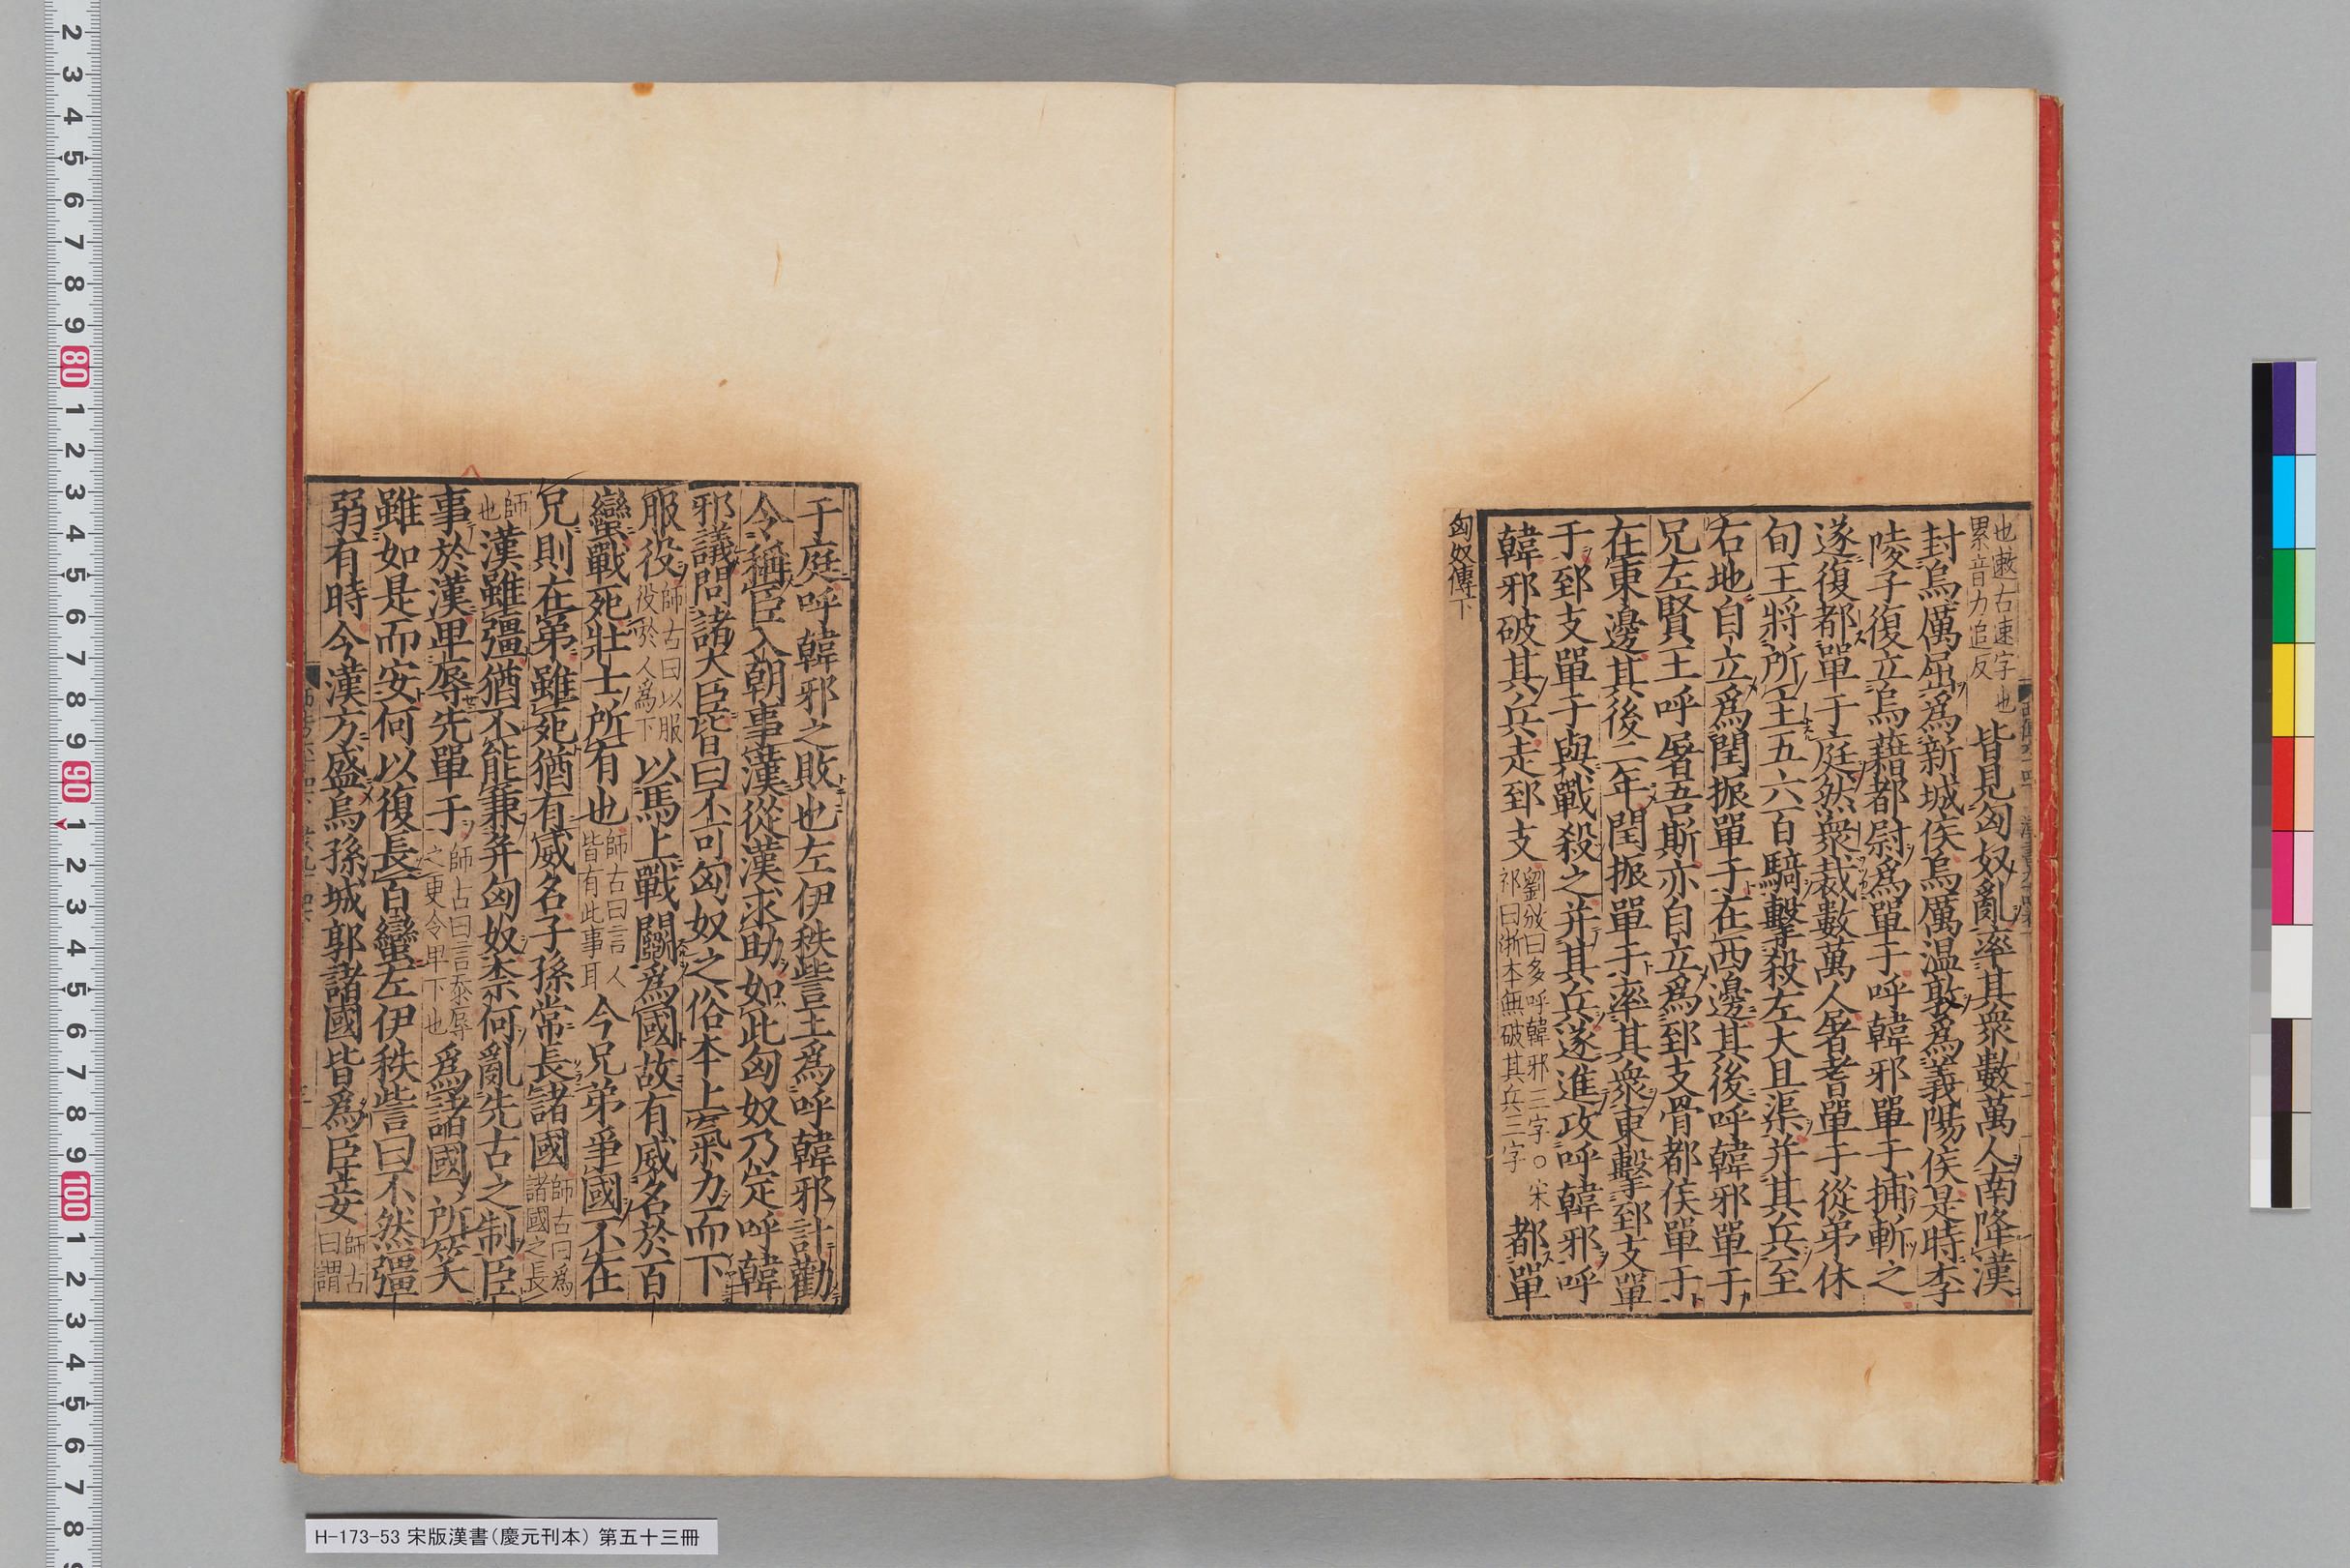 也遬古速字也
累音力追反
皆見匈奴亂率其衆數萬人南降漢
封烏厲屈爲新城侯烏厲温敦爲義陽侯是時李
陵子復立烏藉都尉爲單于呼韓邪單于捕斬之
遂復都單于庭然衆裁數萬人屠耆單于從弟休
旬王將所主五六百騎擊殺左大且渠并其兵至
右地自立爲閏振單于在西邊其後呼韓邪單于
兄左賢王呼屠吾斯亦自立爲郅支骨都侯單于
在東邊其後二年閏振單于率其衆東擊郅支單
于郅支單于與戰殺之并其兵遂進攻呼韓邪呼
韓邪破其兵走郅支
劉攽曰多呼韓邪三字○宋
祁曰浙本無破其兵三字
都單
匈奴傳下
于庭呼韓邪之敗也左伊秩訾王爲呼韓邪計勸
令稱臣入朝事漢從漢求助如此匈奴乃定呼韓
邪議問諸大臣皆曰不可匈奴之俗本上氣力而下
服役
師古曰以服
役於人爲下
以馬上戰鬭爲國故有威名於百
蠻戰死壯士所有也
師古曰言人
皆有此事耳
今兄弟爭國不在
兄則在弟雖死猶有威名子孫常長諸國
師古曰爲
諸國之長
師
也
漢雖彊猶不能兼并匈奴柰何亂先古之制臣
事於漢卑辱先單于
師古曰言忝辱
之更令卑下也
爲諸國所笑
雖如是而安何以復長百蠻左伊秩訾曰不然彊
弱有時今漢方盛烏孫城郭諸國皆爲臣妾
師古
曰謂
H-173-53 宋版漢書(慶元刊本) 第五十三冊